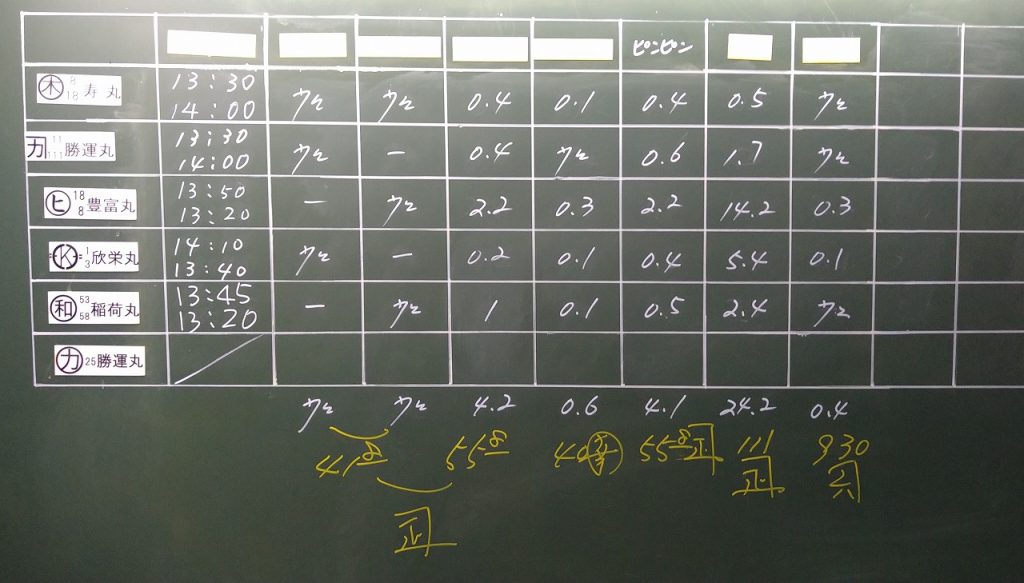 ピンピン
㊍ 8 18 寿丸 13:30 14:00 ケ ケ 0.4 0.1 0.4 0.5 ケ
カ 11 111 勝運丸 13:30 14:00 ケ ー 0.4 ケ 0.6 1.7 ケ
ヒ 18 8 豊富丸 13:50 13:20 ー ケ 2.2 0.3 2.2 14.2 0.3
K 1 3 欣栄丸 14:10 13:40 ケ ー 0.2 0.1 0.4 5.4 0.1
和 53 58 稲荷丸 13:45 13:20 ー ケ 1 0.1 0.5 2.4 ケ
カ 25 勝運丸
ケ ケ 4.2 0.6 4.1 24.2 0.4
41 55 40 55 正 111 930
正 六
正